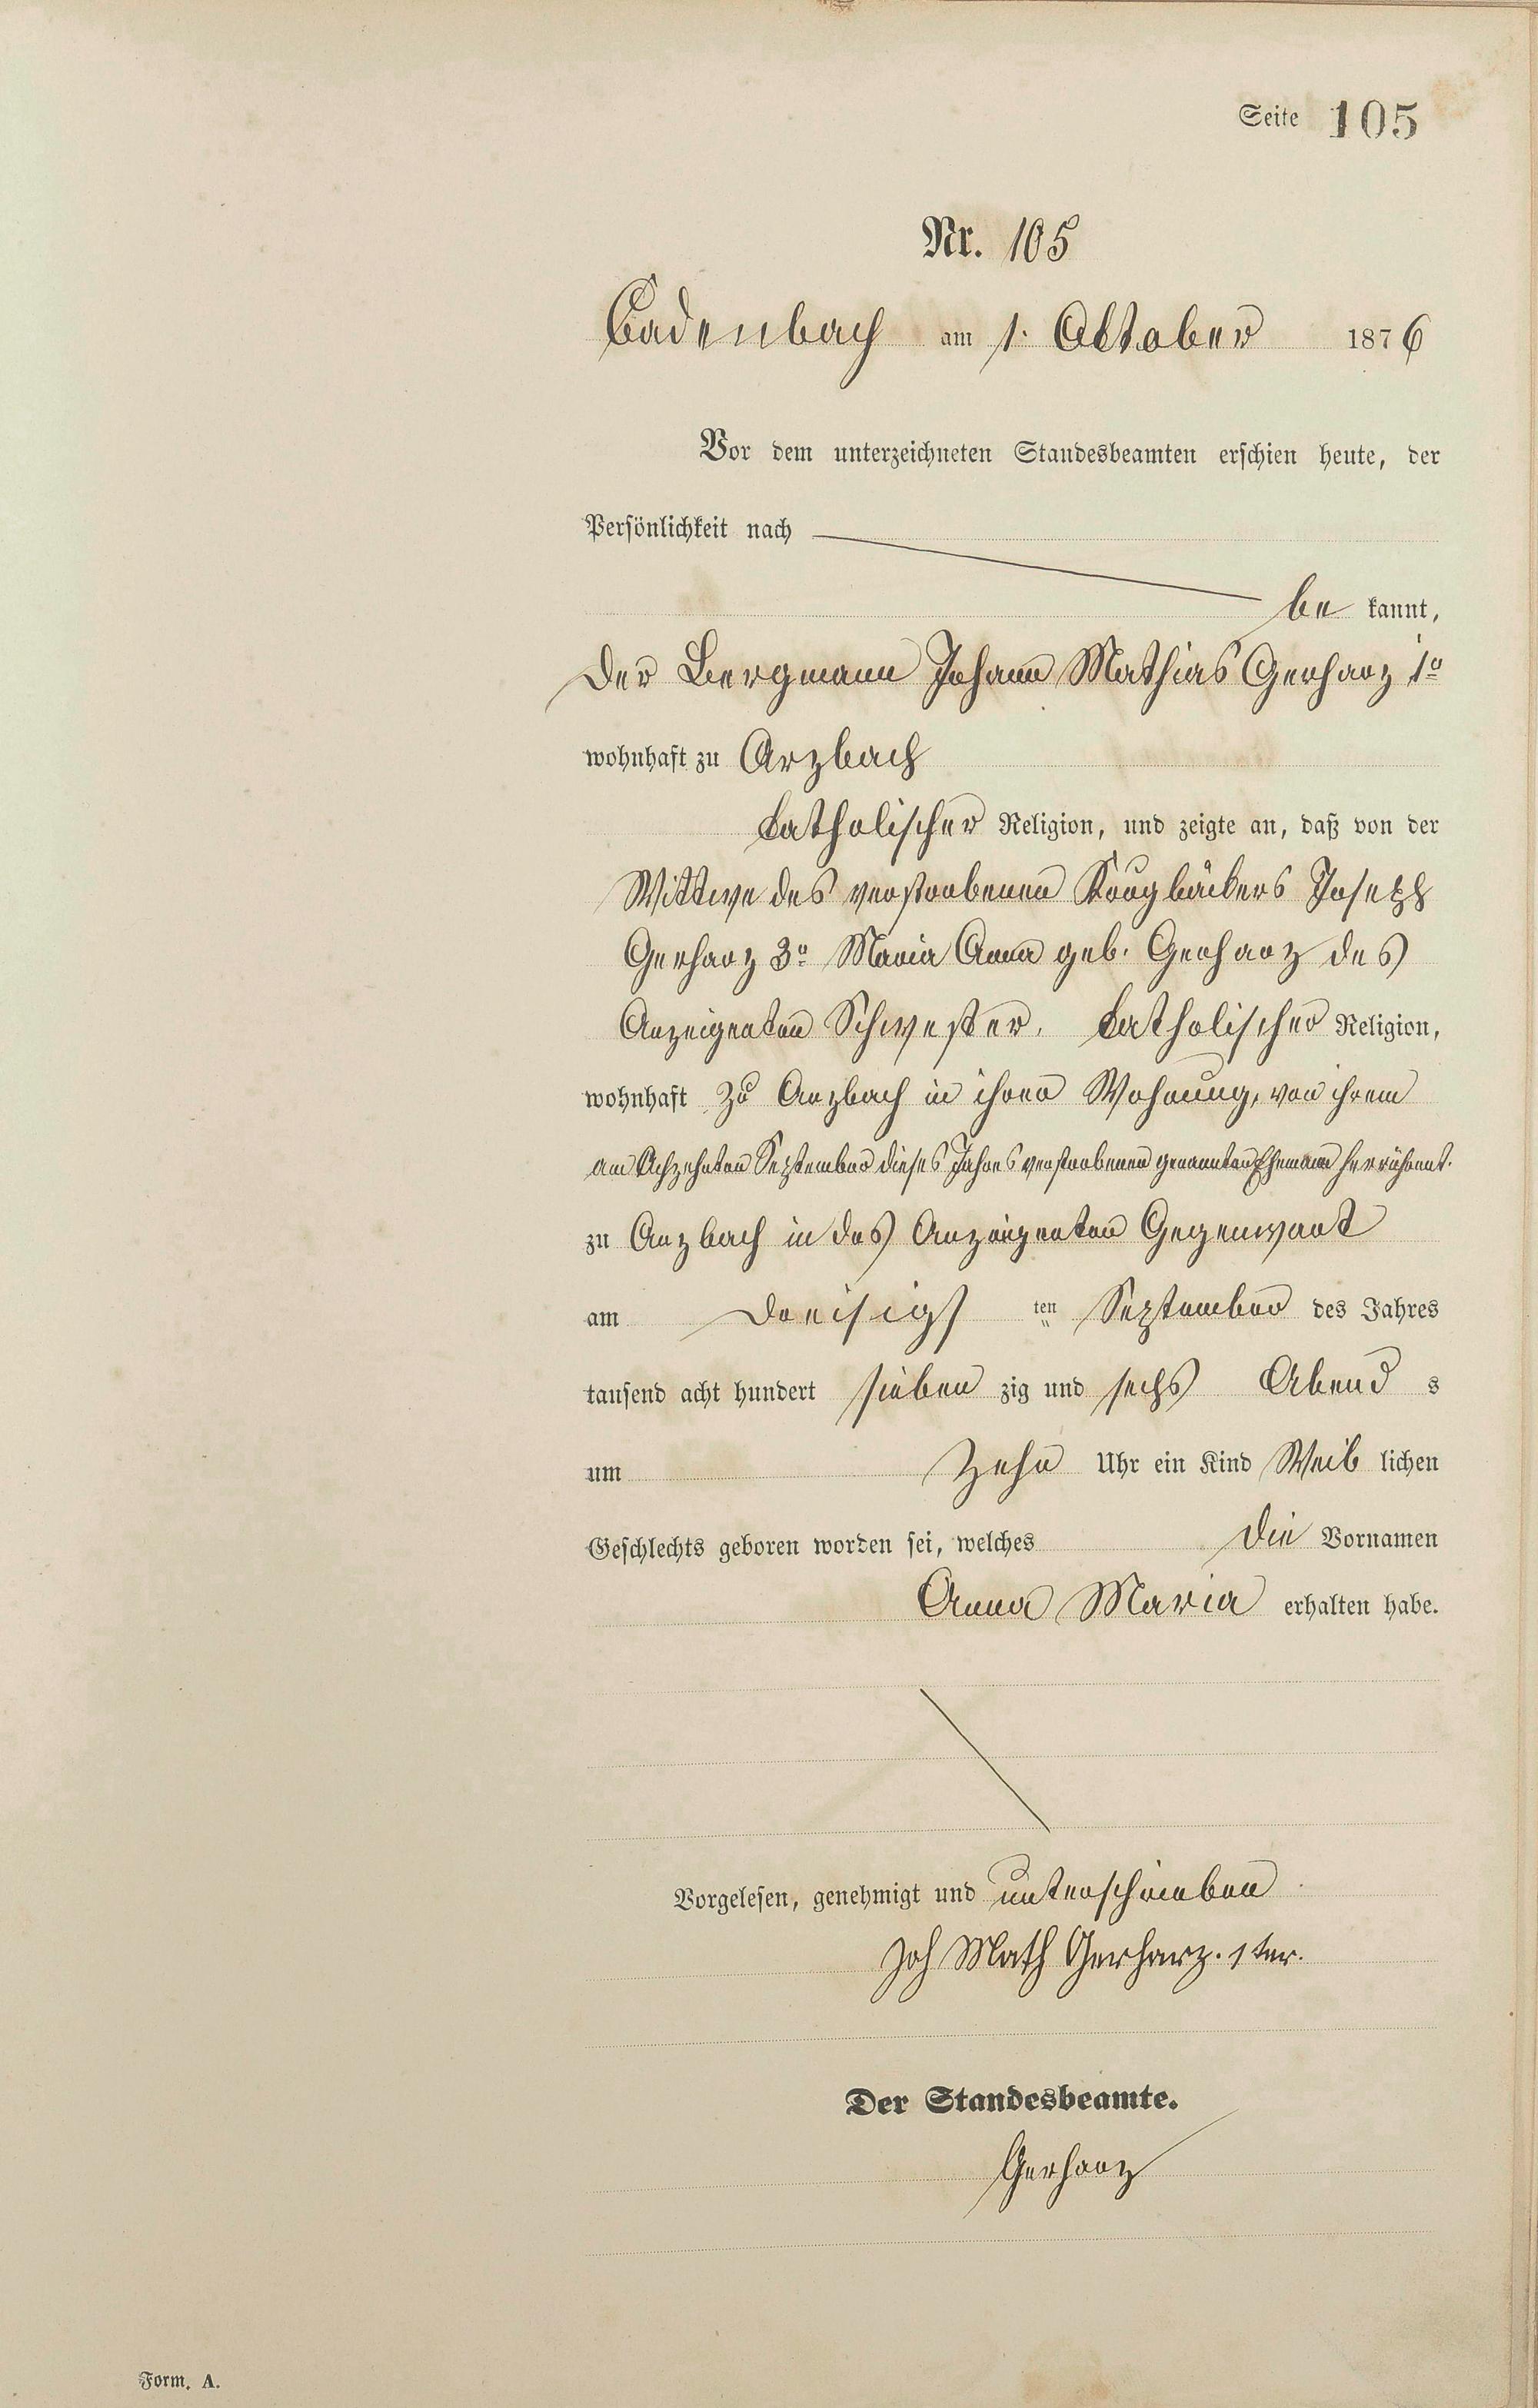 Seite 105
Nr. 105
Cadenbach am 1. Oktober 1876
Vor dem unterzeichneten Standesbeamten erschien heute, der
Persönlichkeit nach
be kannt,
der Bergmann Johann Mathias Gerharz 1r
wohnhaft zu Arzbach
katholischer Religion, und zeigte an, daß von der
Wittwe des verstorbenen Krugbäckers Joseph
Gerharz 3r Maria Anna geb. Gerharz des
Anzeigenten Schwester, katholischer Religion,
wohnhaft zu Arzbach in ihrer Wohnung, von ihrem
am Achzehnten September dieses Jahres verstorbenen genannten Ehemann herrührent.
zu Arzbach in des Anzeigenten Gegenwart
am Dreisigs ten September des Jahres
tausend acht hundert sieben zig und sechs Abend s
um Zehn Uhr ein Kind Weib lichen
Geschlechts geboren worden sei, welches die Vornamen
Anna Maria erhalten habe.
Vorgelesen, genehmigt und unterschrieben
Joh Math Gerharz. 1ter.
Der Standesbeamte.
Gerharz
Form. A.